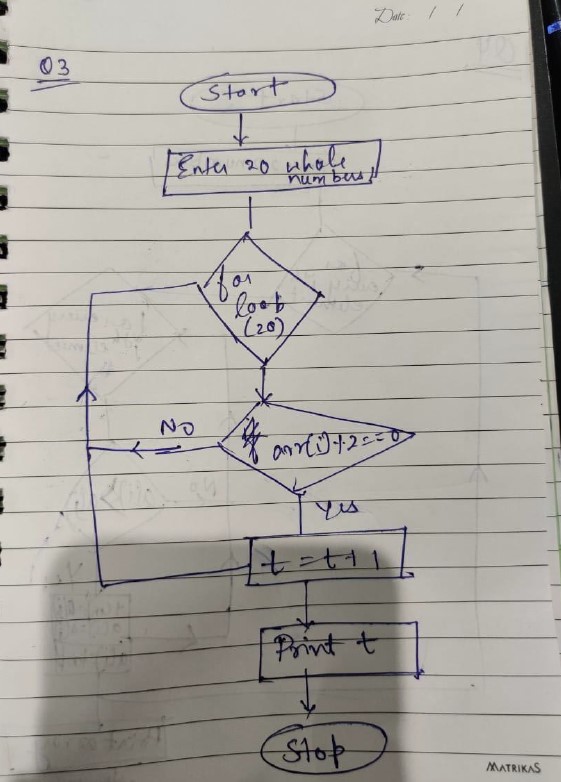 Date: / /
Q3
Start
Enter 20 whole
numbers
for
loop
(20)
NO
if arr(i)%2==0
Yes
t = t+1
Print t
Stop
MATRIKAS